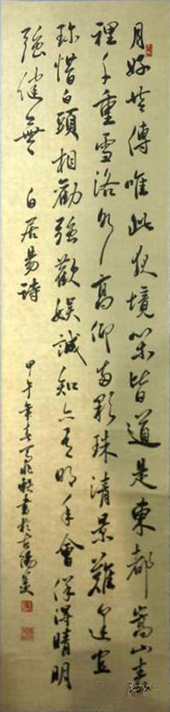 月好共傳唯此夜境閑皆道是東都嵩山表
裡千重雪洛水高低兩顆珠清景難逢宜
珍惜白頭相勸強歡娛誠知亦有明年會保得晴明
強健無 白居易詩
甲午年春 書於古陽羨